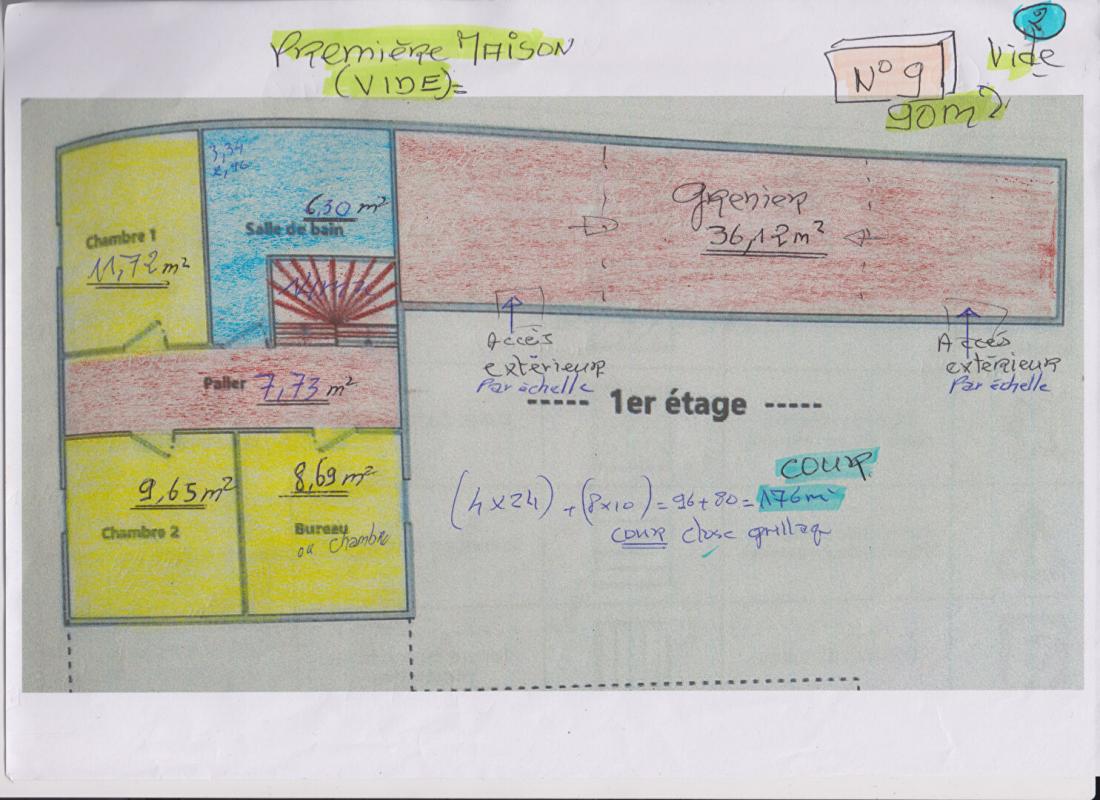 2
PREMIÈRE MAISON
(VIDE)=
N° 9
Vide
90m²
3,34
6,30 m²
Salle de bain
Chambre 1
11,72 m²
Grenier
36,12 m²
Accès
extérieur
Par échelle
Accès
extérieur
Par échelle
Palier 7,73 m²
----- 1er étage -----
9,65 m²
Chambre 2
8,69 m²
Bureau
ou chambre
COUR
(4x24) + (8x10) = 96+80 = 176m²
COUR close grillag